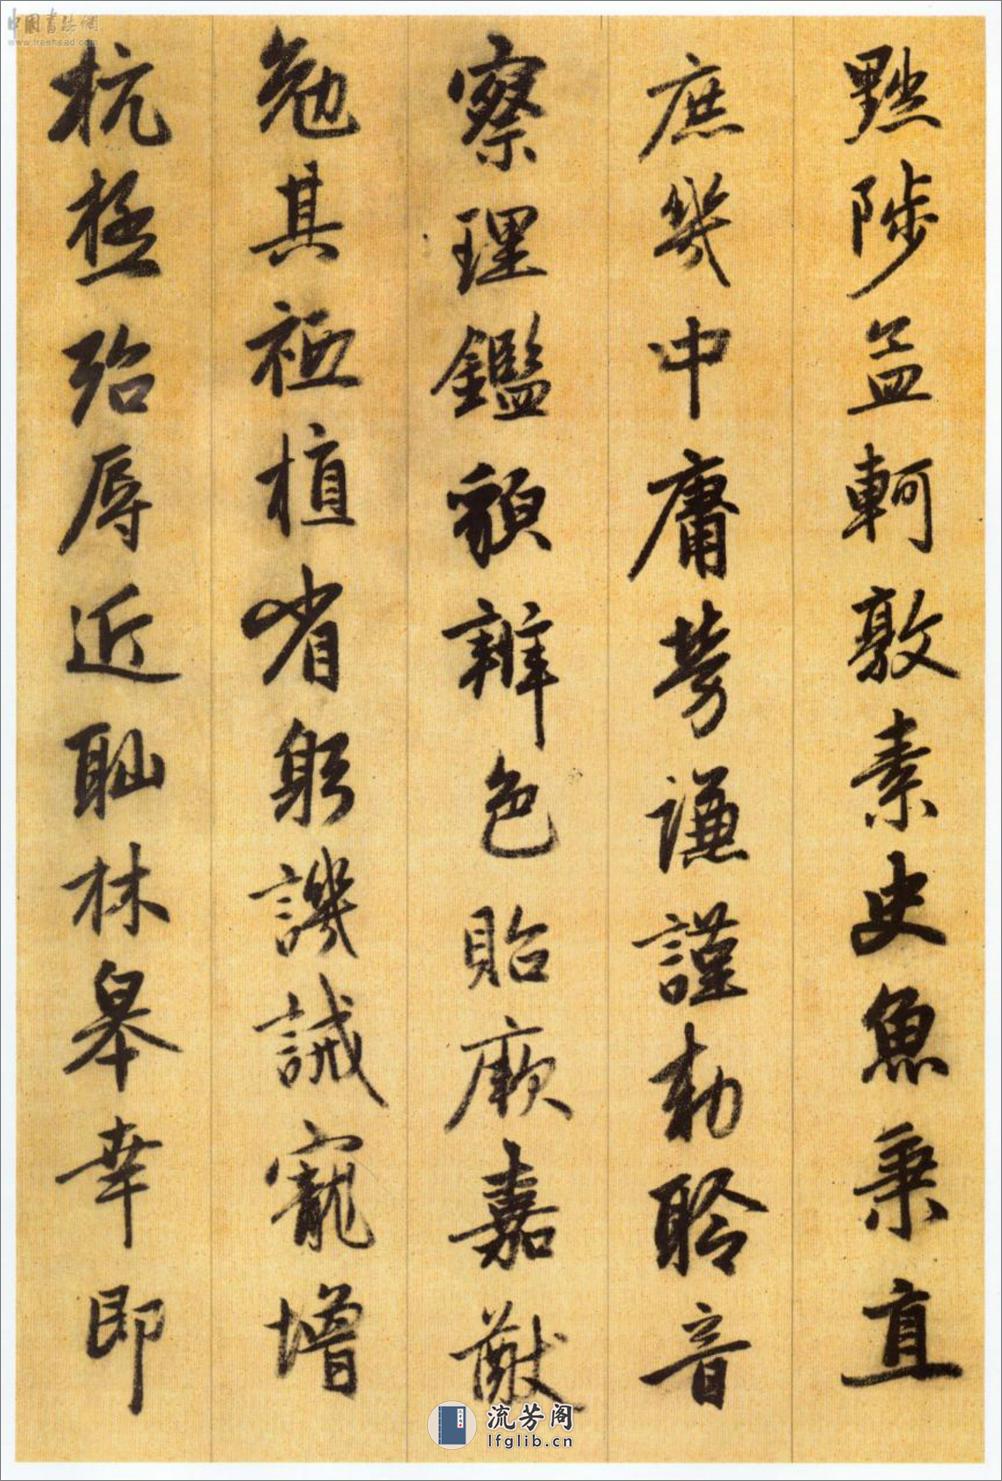 黜陟孟軻敦素史魚秉直
庶幾中庸勞謙謹勅聆音
察理鑑貌辨色貽厥嘉猷
勉其祗植省躬譏誡寵增
抗極殆辱近恥林皋幸即
中国书法网
www.freehead.com
流芳阁
lfglib.cn